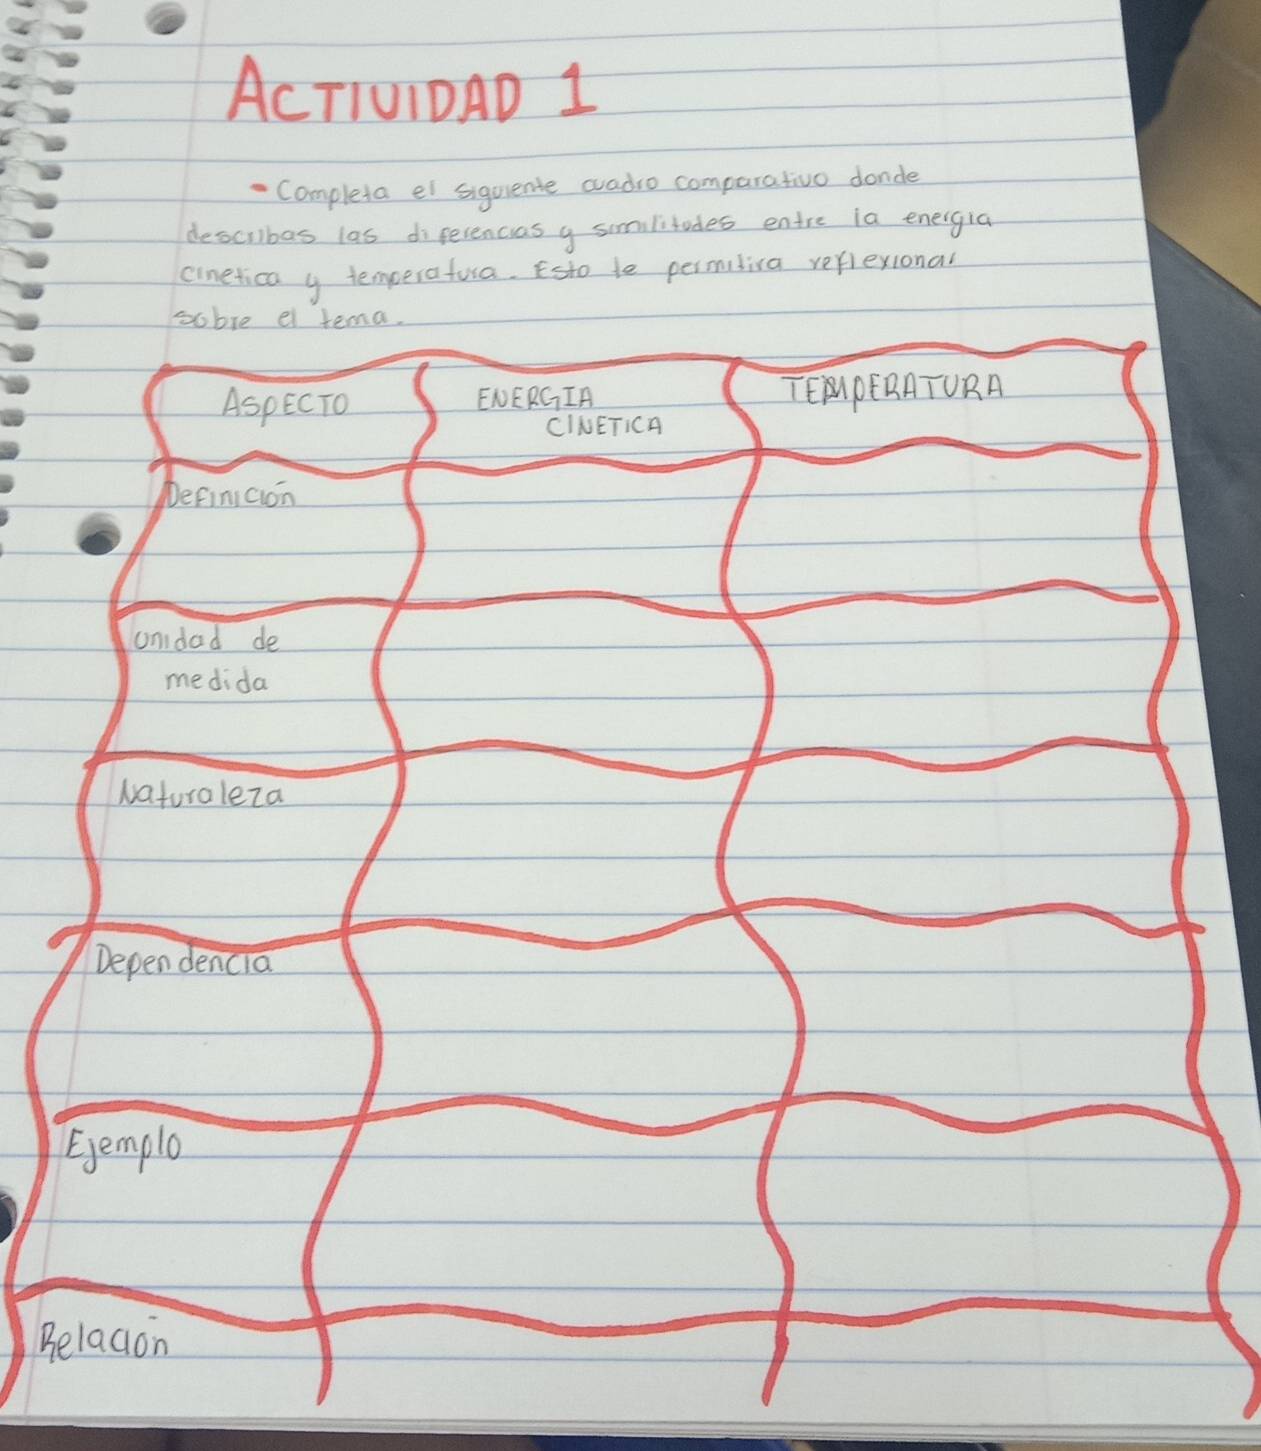 ACTIVIDAD 1
- Completa el siguiente cuadro comparativo donde
describas las diferencias y similitudes entre la energia
cinetica y temperatura. Esto te permitira reflexionar
sobre el tema.
ASPECTO ENERGIA TEMPERATURA
CINETICA
Definición
Unidad de
medida
Naturaleza
Dependencia
Ejemplo
Relación